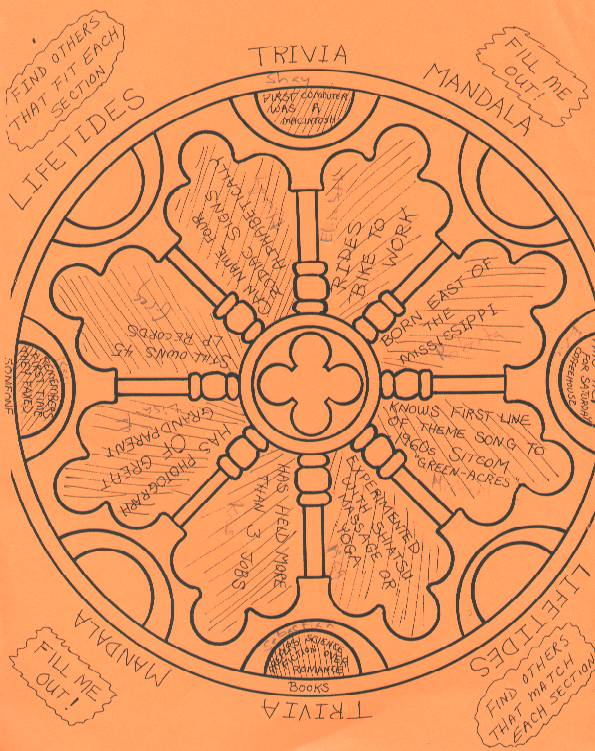 TRIVIA
FIND OTHERS
THAT FIT EACH
SECTION
LIFETIDES
FILL ME
OUT!
MANDALA
Shay
FIRST COMPUTER
WAS A
MACINTOSH
CAN NAME FOUR
ZODIAC SIGNS
ALPHABETICALLY
RIDES
BIKE TO
WORK
BORN EAST OF
THE
MISSISSIPPI
STILL OWNS 45
LP RECORDS
KNOWS FIRST LINE
OF THEME SONG TO
1960s SITCOM
"GREEN-ACRES"
HAS PHOTOGRAPH
OF GREAT
GRANDPARENT
HAS HELD MORE
THAN 3 JOBS
EXPERIMENTED
WITH SHIATSU
MASSAGE OR
YOGA
SOMEONE
FOR SATURDAY
COFFEEHOUSE
SCIENCE
FICTION OVER
ROMANCE
BOOKS
MANDALA
FILL ME
OUT!
TRIVIA
LIFETIDES
FIND OTHERS
THAT MATCH
EACH SECTION